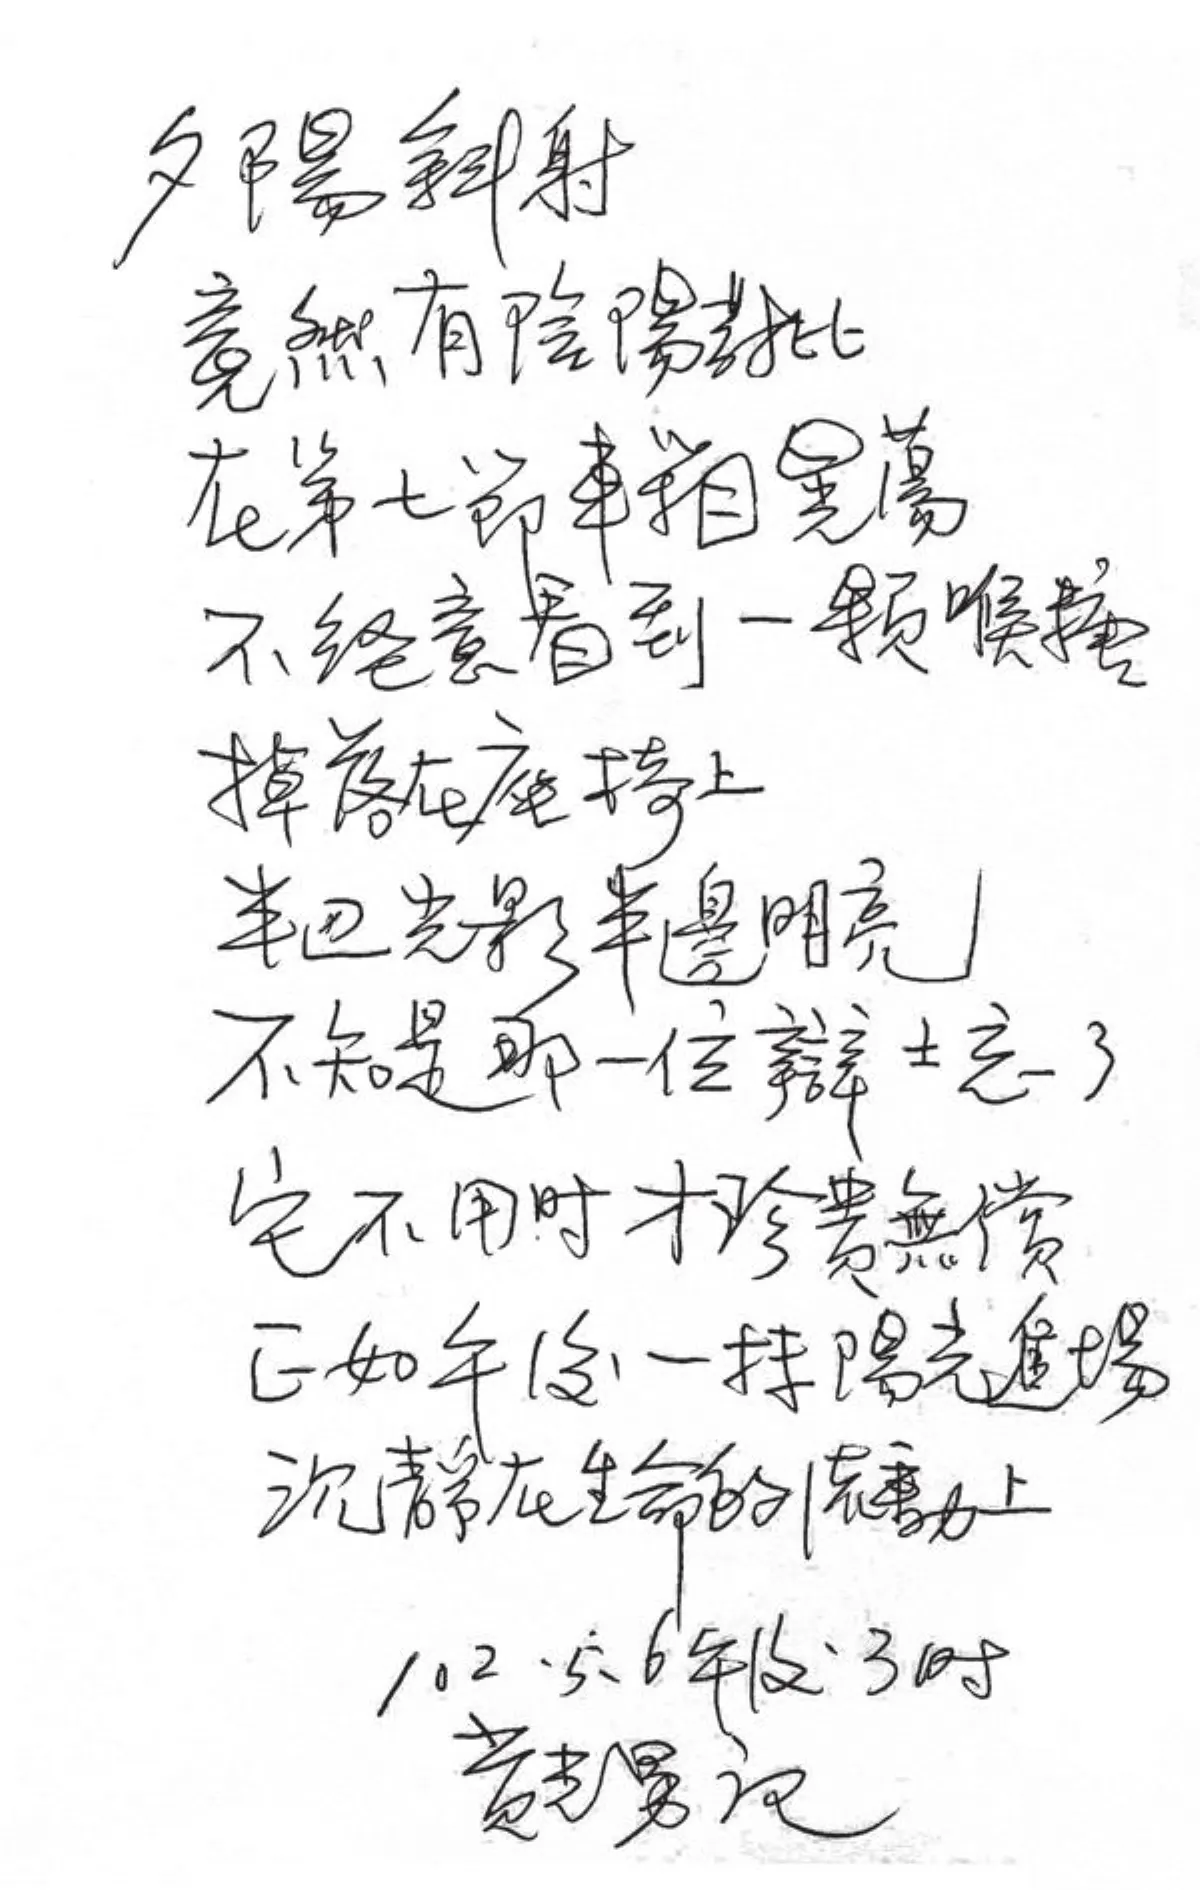 夕陽斜射
竟然有陰陽對比
在第七節車箱晃蕩
不經意看到一顆喉糖
掉落在座椅上
半邊光影半邊明亮
不知是那一位辯士忘了
它不用時才珍貴無償
正如午後一抹陽光進場
沉靜在生命的震動上
102.5.6午後.3時
黃光男記